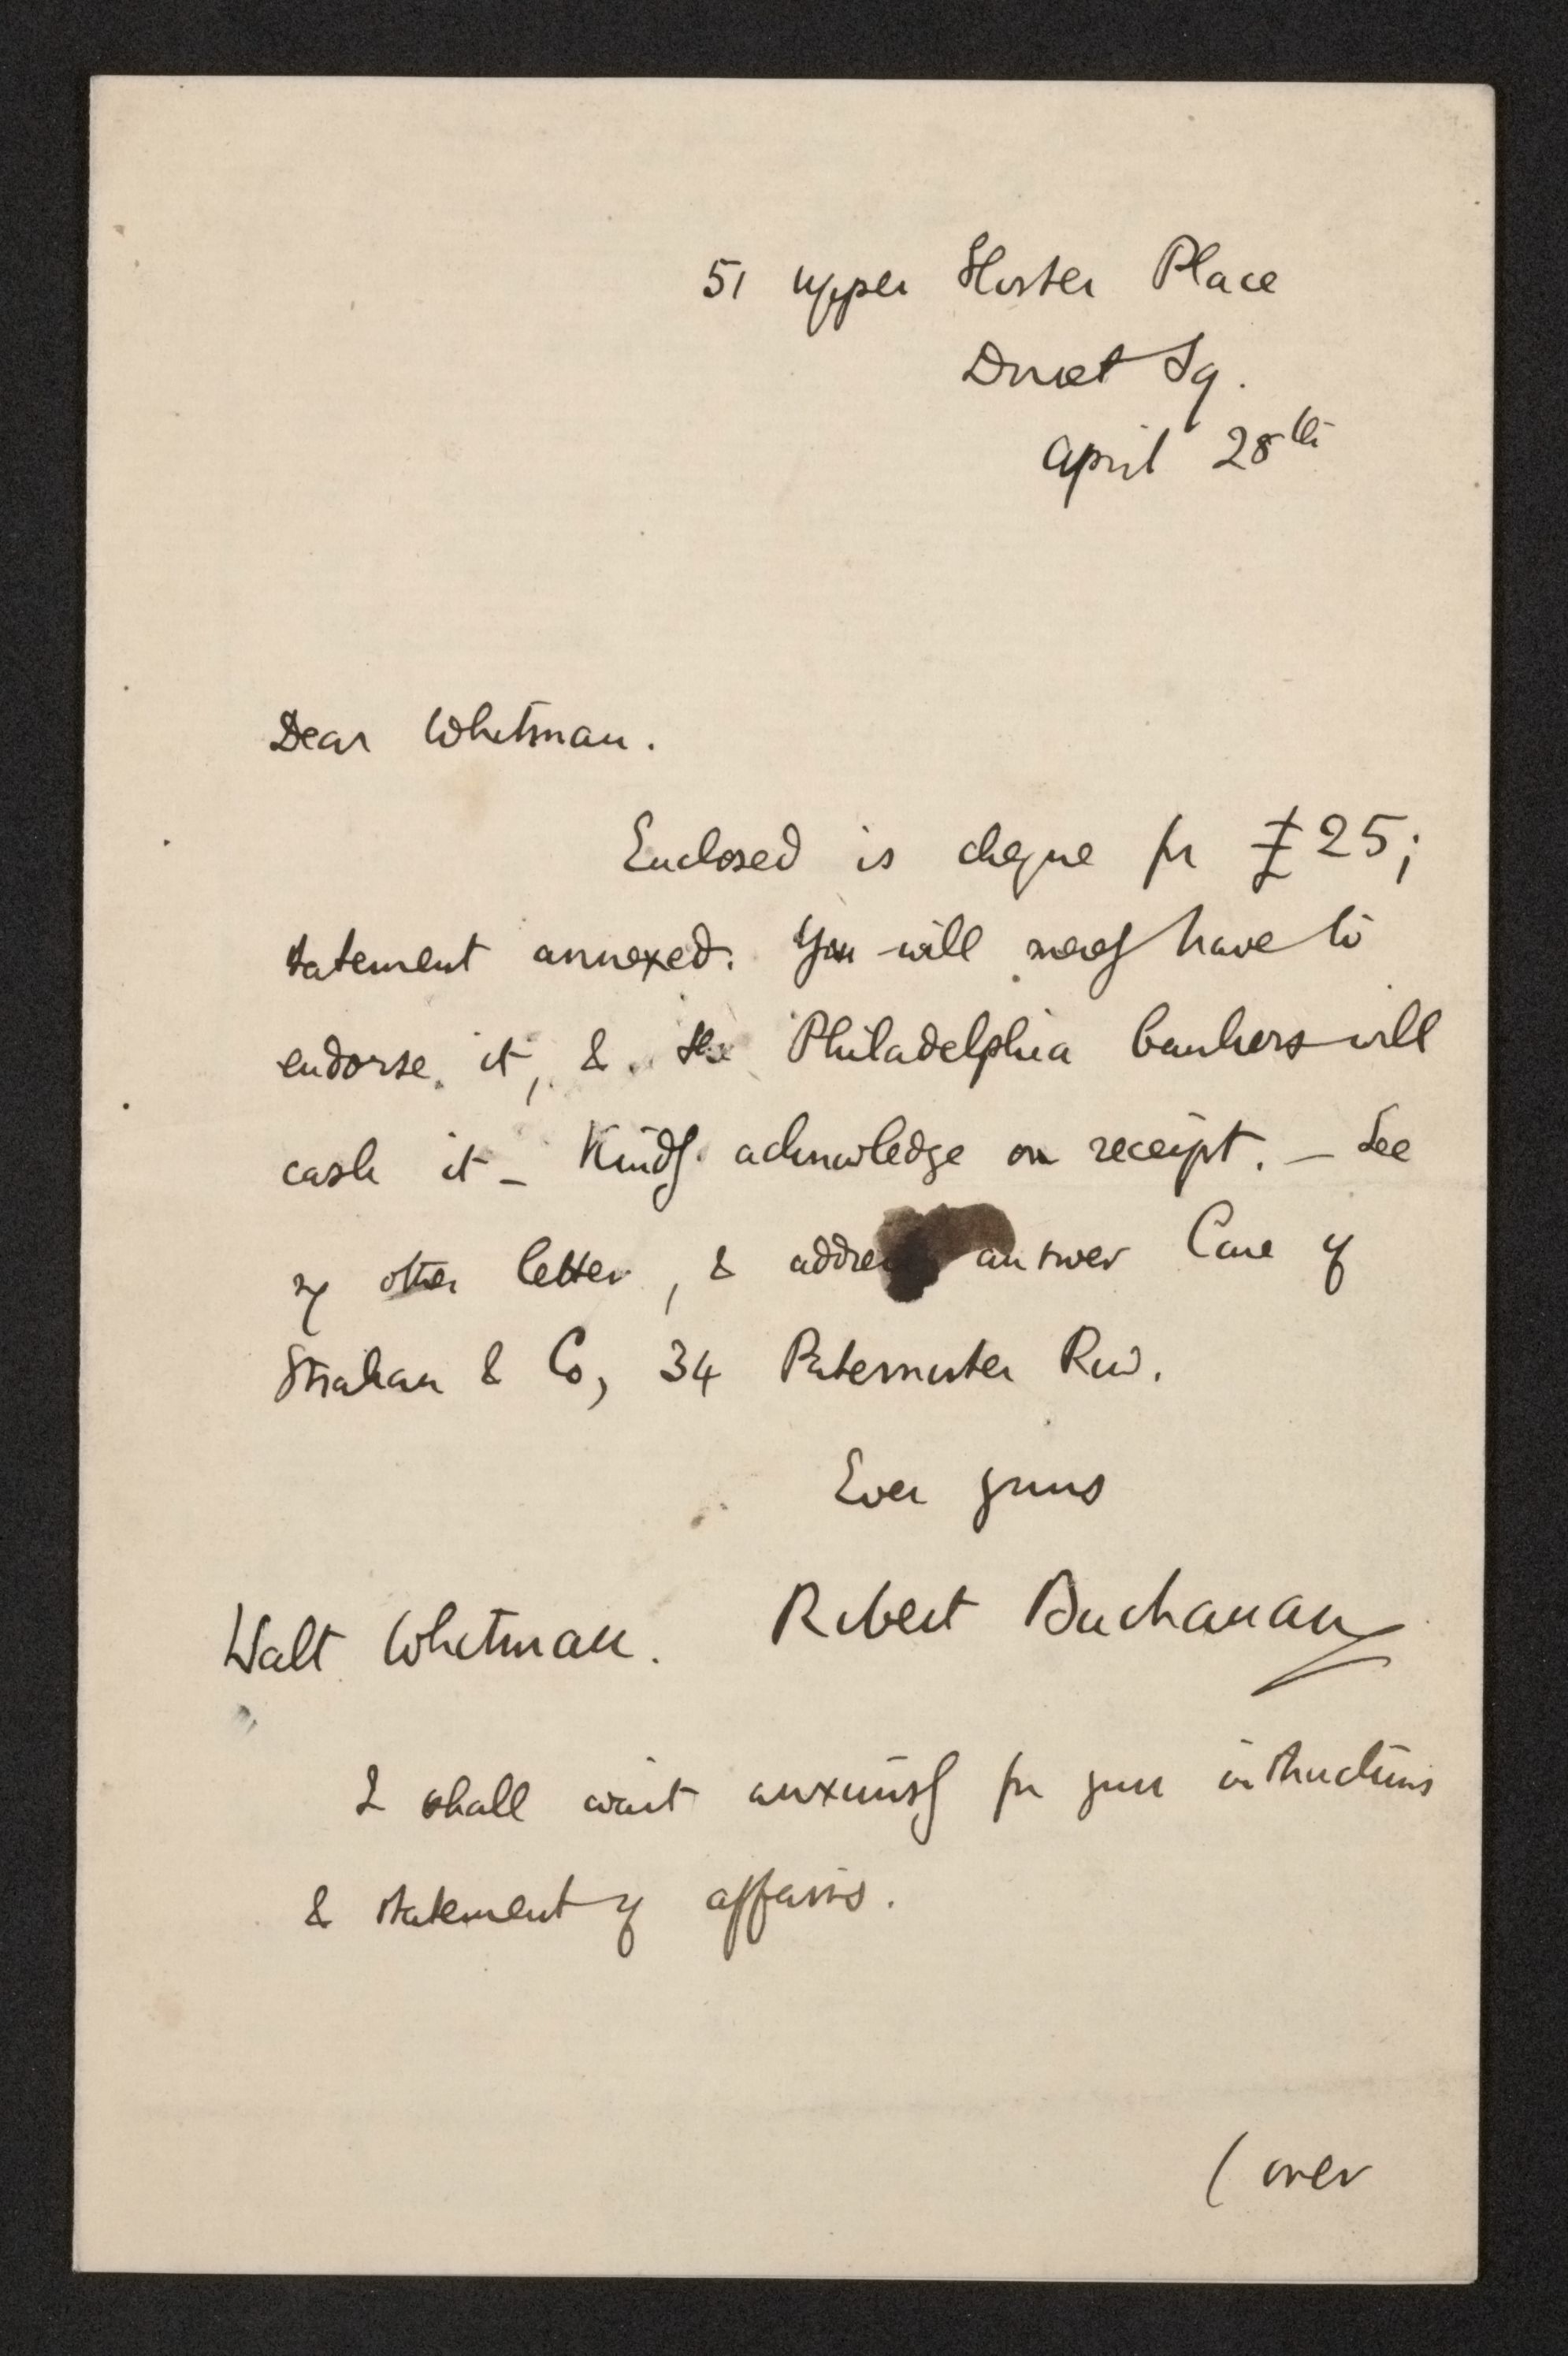 51 Upper Gloster Place
Dorset Sq.
April 28th
Dear Whitman.
Enclosed is cheque for £25;
statement annexed. You will merely have to
endorse it, & the Philadelphia bankers will
cash it – Kindly acknowledge on receipt. – See
my other letter, & address answer Care of
Strahan & Co, 34 Paternoster Row.
Ever yours
Robert Buchanan
Walt Whitman.
I shall wait anxiously for your instructions
& statement of affairs.
(over